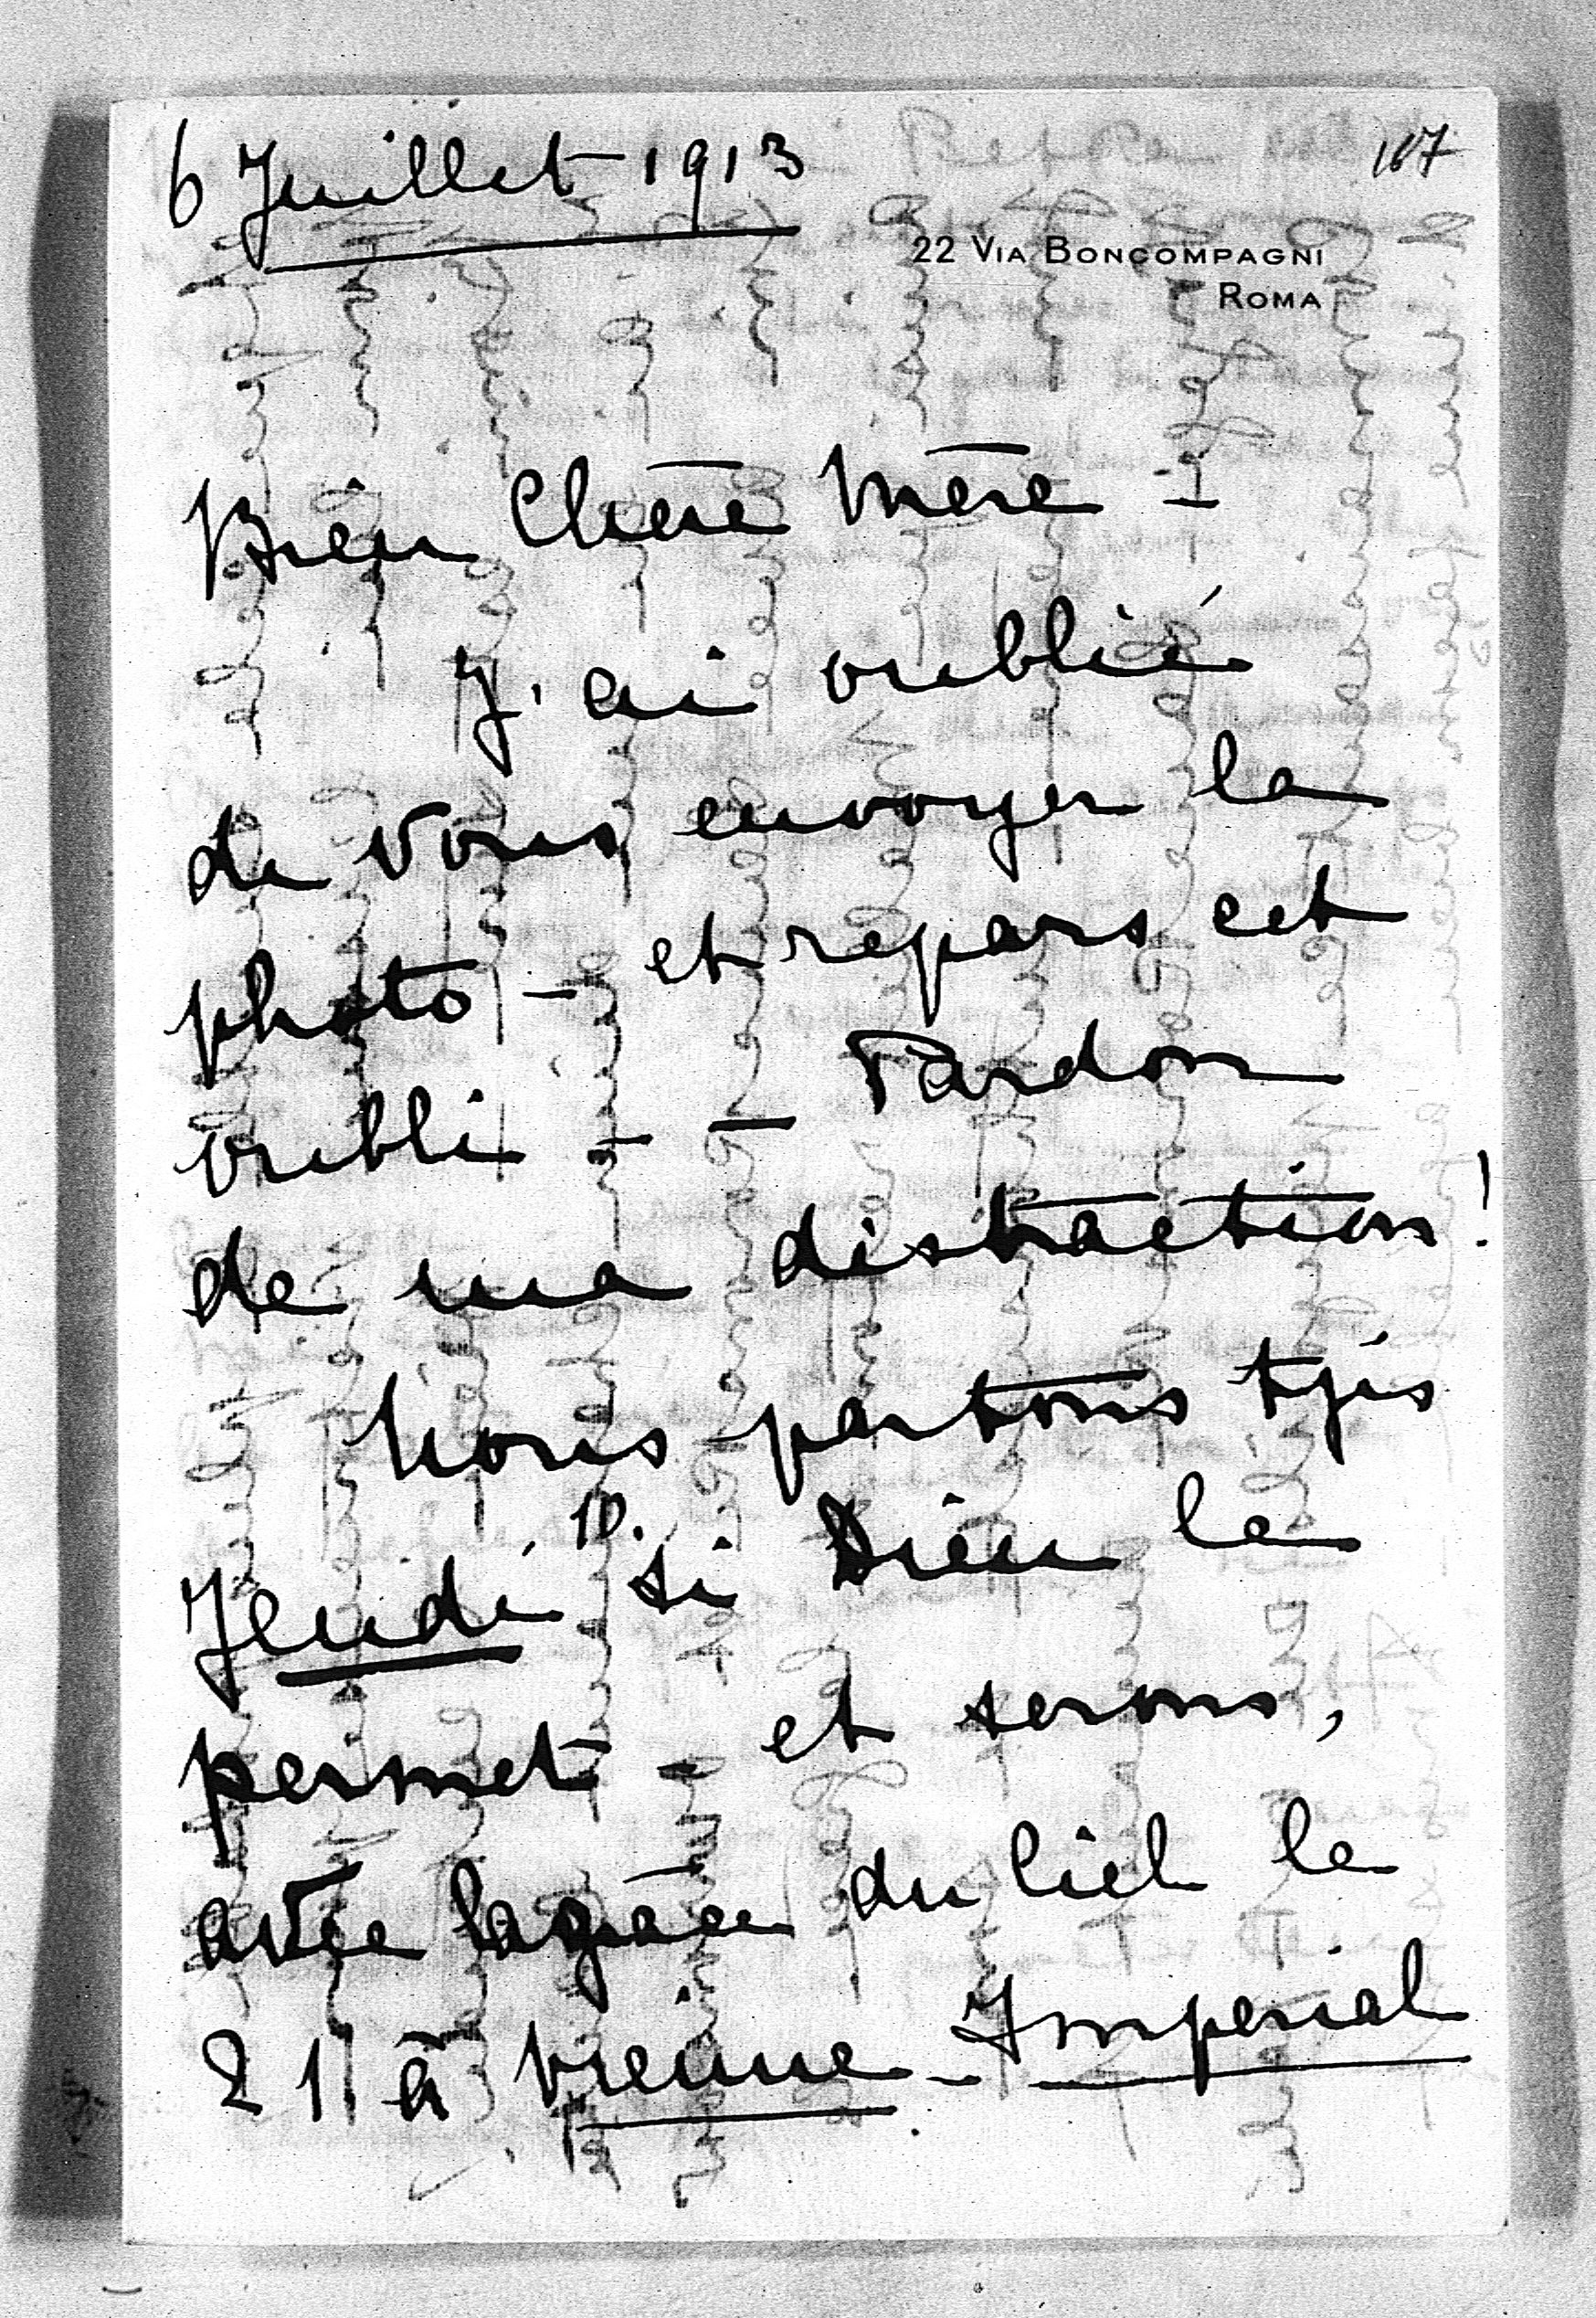 6 Juillet 1913
107
22 Via Boncompagni
Roma
Bien Chère Mère -
J'ai oublié
de vous envoyer la
photo - et repare cet
oubli - - Pardon
de ma distraction!
Nous partons tjrs
Jeudi 10. si Dieu le
permet - et serons,
avec la grâce du Ciel le
21 à Vienne - Imperial